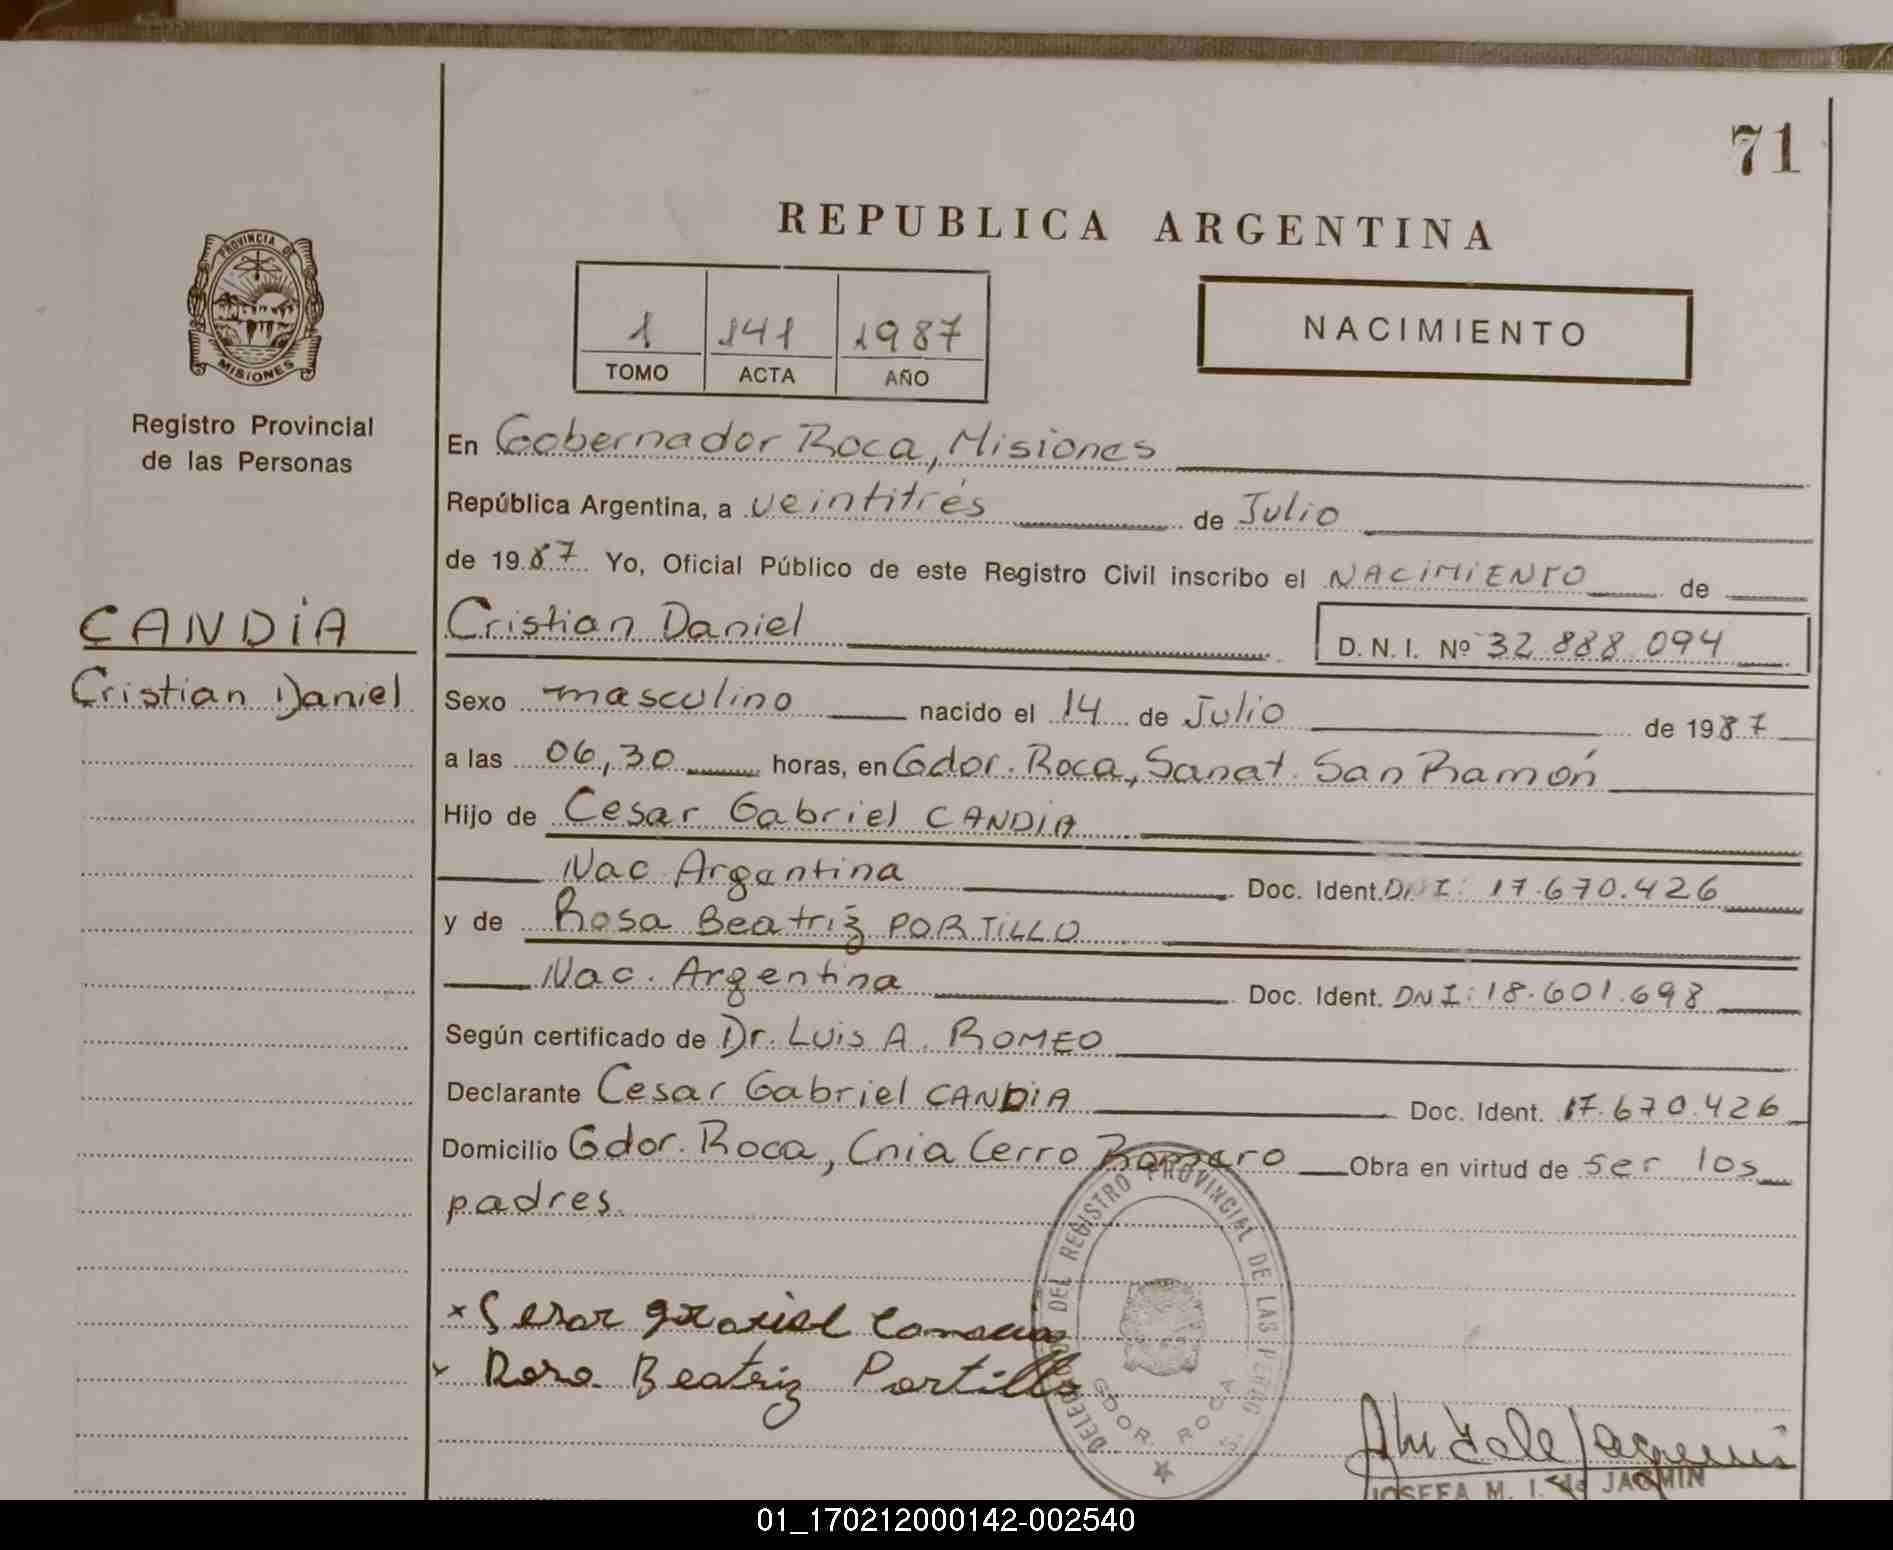 71
REPUBLICA ARGENTINA
PROVINCIA DE
MISIONES
Registro Provincial
de las Personas
1 141 1987
TOMO ACTA AÑO
NACIMIENTO
En Gobernador Roca, Misiones
República Argentina, a veintitrés de Julio
de 1987 Yo, Oficial Público de este Registro Civil inscribo el NACIMIENTO de
CANDIA
Cristian Daniel
Cristian Daniel D. N. I. Nº 32.888.094
Sexo masculino nacido el 14 de Julio de 1987
a las 06,30 horas, en Gdor. Roca, Sanat. San Ramón
Hijo de Cesar Gabriel CANDIA
Nac. Argentina Doc. Ident. DNI: 17.670.426
y de Rosa Beatriz PORTILLO
Nac. Argentina Doc. Ident. DNI: 18.601.698
Según certificado de Dr. Luis A. ROMEO
Declarante Cesar Gabriel CANDIA Doc. Ident. 17.670.426
Domicilio Gdor. Roca, Cnia Cerro Romero Obra en virtud de ser los
padres.
DEL REGISTRO PROVINCIAL DE LAS PERS
GDOR. ROCA
x Cesar Gabriel Candia
x Rosa Beatriz Portillo
JOSEFA M. I. de JACMIN
01_170212000142-002540